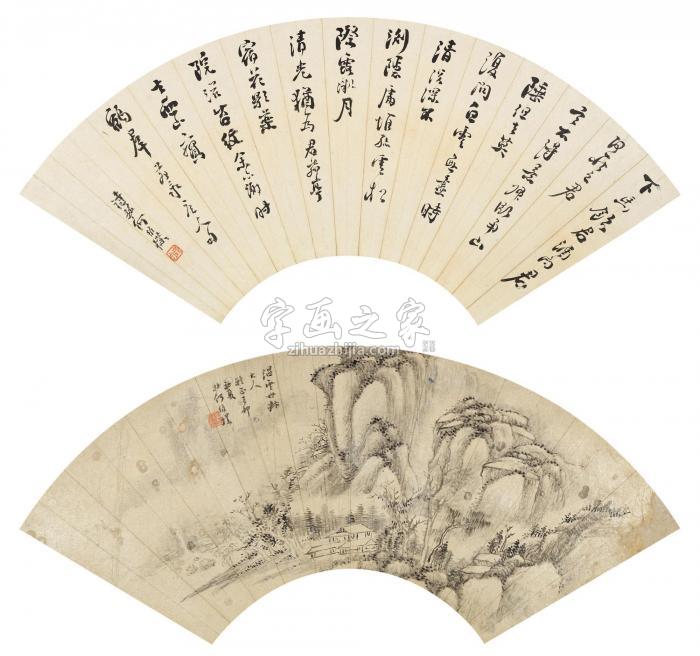 下馬飲君酒問君
何所之君
言不得意歸臥南山
陲但去莫
復問白雲無盡時
清溪深不
測隱處唯孤雲松
際露微月
清光猶為君茅亭
宿花影藥
院滋苔紋余亦謝時
去西山鸞
鶴群 大人
詩孫何維樸
字画之家
zihuazhijia.com
大人